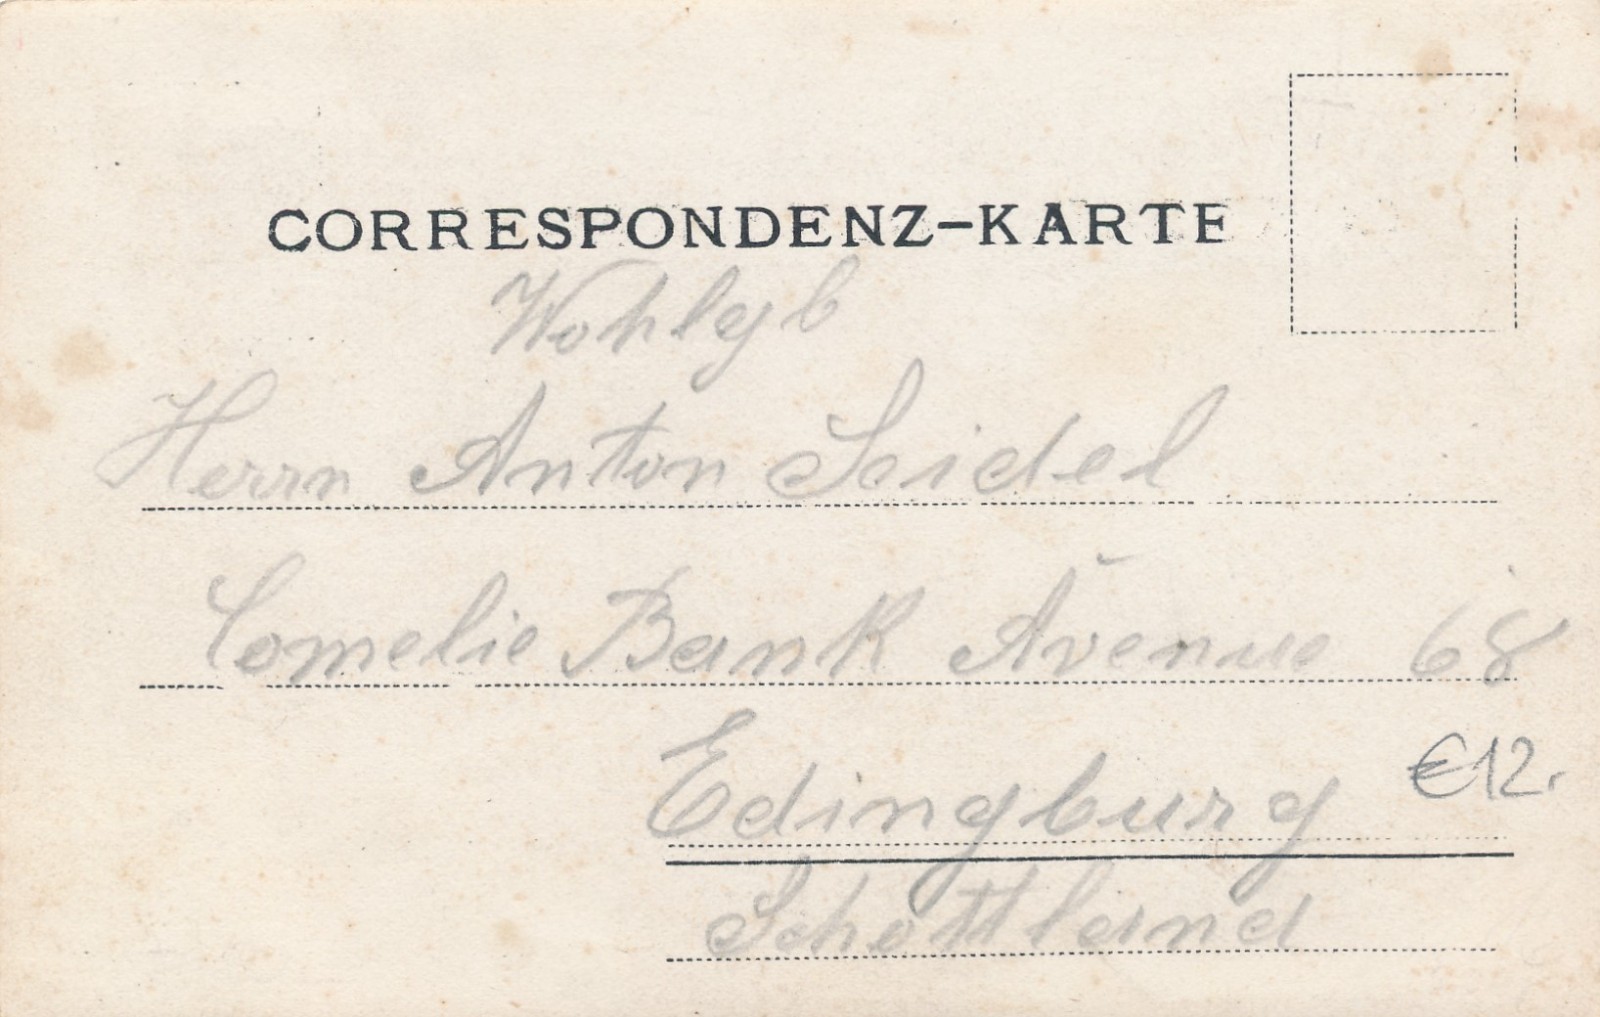 CORRESPONDENZ-KARTE
Wohlgb
Herrn Anton Seidel
Comelie Bank Avenue 68
€12.
Edingburg
Schottland